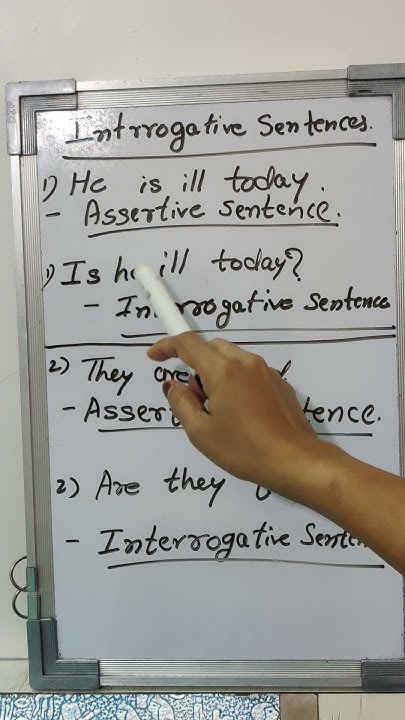 Intrrogative Sentences.
1) He is ill today.
- Assertive Sentence.
1) Is he ill today?
- Interrogative Sentence
2) They are
- Assertive Sentence.
2) Are they
- Interrogative Sentence